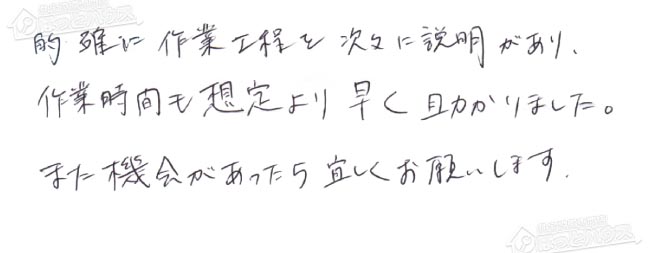 的確に作業工程を次々に説明があり、
作業時間も想定より早く助かりました。
また機会があったら宜しくお願いします.